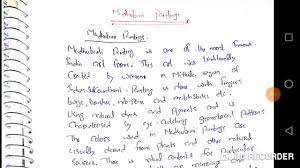 Madhubani Paintings
Madhubani Paintings.
Madhubani Painting is one of the most famous
Indian art forms. This art was traditionally
Created by women in Mithila region of
Indian Subcontinent. Painting is done with fingers,
twigs, brushes, nib-pens and matchsticks etc.
Using natural dyes and pigments and is
Characterised by eye-catching geometrical patterns.
The colors used in Madhubani Paintings are
usually derived from plants and other natural
Sources. There is ritual contents for particular
RECORDER